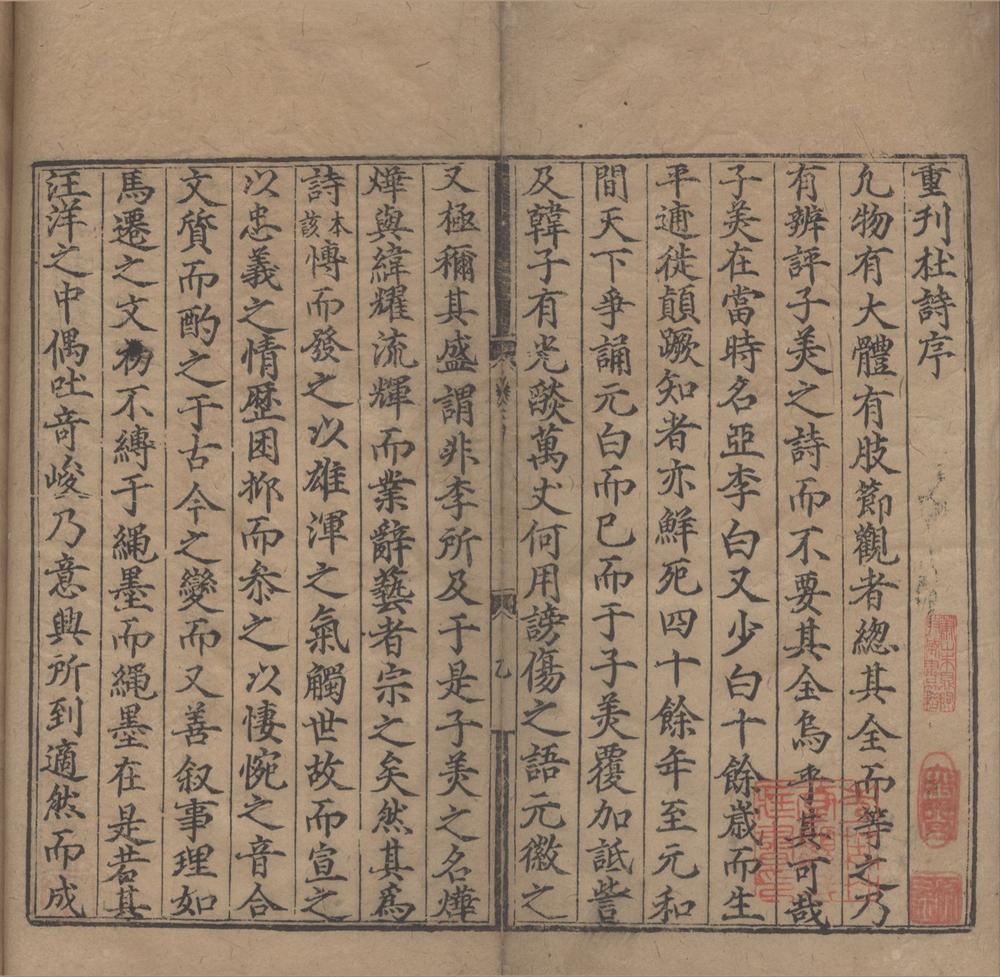 重刊杜詩序
凢物有大體有肢節觀者緫其全而等之乃
有辨評子美之詩而不要其全烏乎其可哉
子美在當時名亞李白又少白十餘歳而生
平遖徙顛蹶知者亦鮮死四十餘年至元和
間天下爭誦元白而已而于子美覆加詆訾
及韓子有光燄萬丈何用謗傷之語元微之
又極稱其盛謂非李所及于是子美之名燁
燁與緯耀流輝而業辭藝者宗之矣然其爲
詩本該博而發之以雄渾之氣觸世故而宣之
以忠義之情歴困抑而叅之以悽惋之音合
文質而酌之于古今之變而又善叙事理如
馬遷之文初不縳于繩墨而繩墨在是若其
汪洋之中偶吐奇峻乃意興所到適然而成
乙